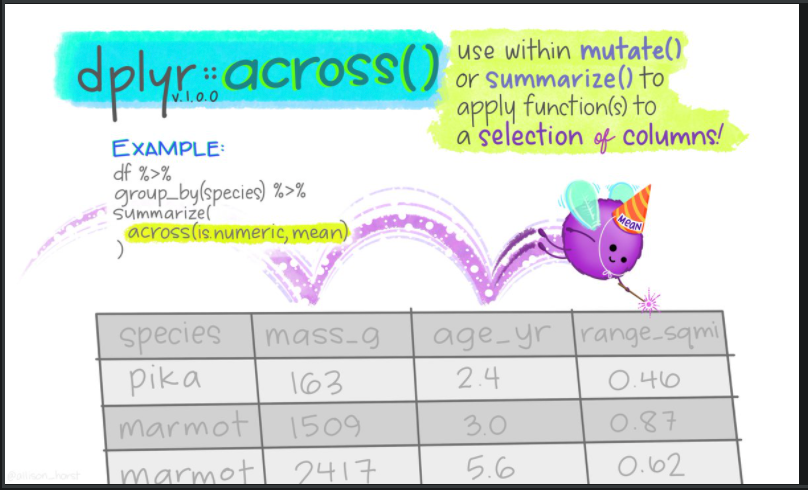 dplyr::across()
v.1.0.0
use within mutate()
or summarize() to
apply function(s) to
a selection of columns!
EXAMPLE:
df %>%
group_by(species) %>%
summarize(
across(is.numeric, mean)
)
MEAN
species mass_g age_yr range_sqmi
pika 163 2.4 0.46
marmot 1509 3.0 0.87
marmot 2417 5.6 0.62
@allison_horst